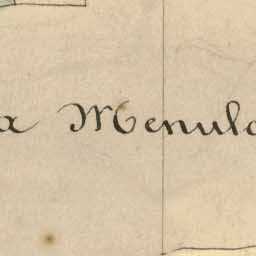 a Menula